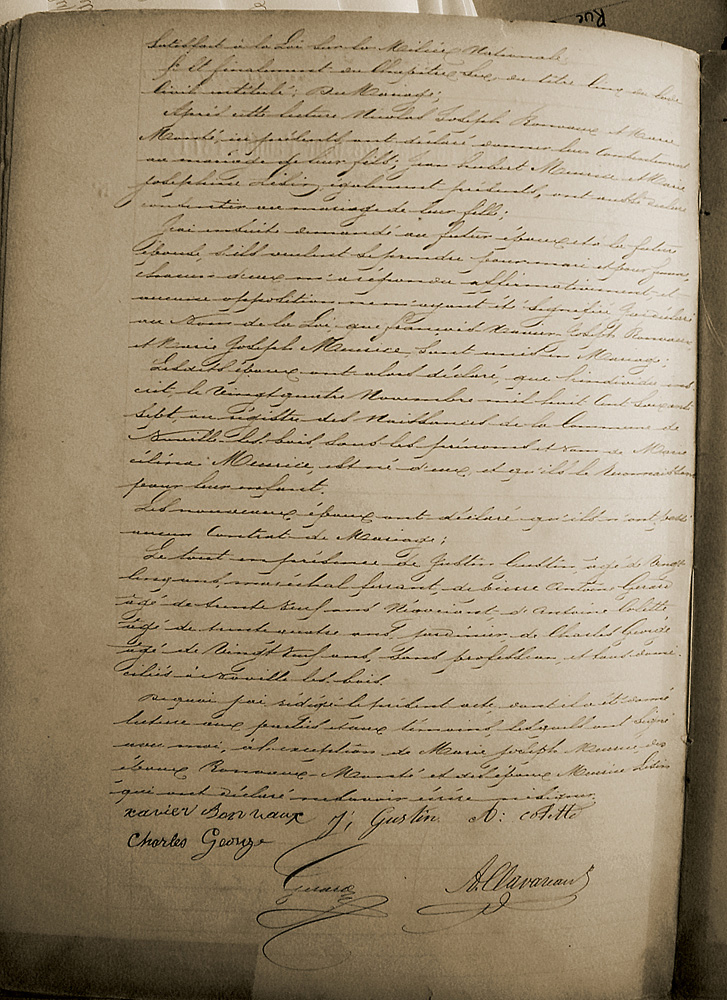 Rue
Satisfait à la Loi sur la Milice Nationale
5° Et finalement du Chapitre six, du titre cinq du Code
Civil intitulé; Du Mariage;
Après cette lecture Nicolas Joseph Bonvaux et Marie
ici présents ont déclaré donner leur Consentement
au mariage de leur fils; Jean Hubert Meurice et Marie
Josephine Libin, également présents, ont aussi déclaré
consentir au mariage de leur fille;
J'ai ensuite demandé au futur époux et à la future
épouse, s'ils veulent se prendre pour mari et pour femme,
chacun d'eux m'a répondu affirmativement, et
aucune opposition ne m'ayant été signifiée j'ai déclaré
au Nom de la Loi, que François Xavier Joseph Bonvaux
et Marie Joseph Meurice, sont unis en Mariage;
Lesdits époux ont alors déclaré, que l'individu ins
crit, le Vingt quatre Novembre mil huit Cent soixante
sept, au registre des Naissances de la Commune de
Noville les bois, sous les prénoms et Nom de Marie
Célina Meurice, est né d'eux, et qu'ils le reconnaissent
pour leur enfant.
Les nouveaux époux ont déclaré qu'ils n'ont passé
aucun Contrat de Mariage;
Le tout en présence de Justin Gustin, âgé de Vingt
Cinq ans, maréchal ferrant, de Antoine Gérard
âgé de trente neuf ans Négociant, d'Antoine Colette
âgé de trente quatre ans, jardinier, de Charles George
âgé de Vingt neuf ans, Sans profession, et tous domi-
ciliés à Noville les bois.
De quoi j'ai rédigé le présent acte dont il a été donné
lecture aux parties et aux témoins, lesquels ont signé
avec moi, à l'exception de Marie Joseph Meurice, des
époux Bonvaux- et des époux Meurice Libin
qui ont déclaré ne savoir écrire ni signer.
Xavier Bonvaux J; Gustin A: Colette
Charles George
Gérard A. Clavareau